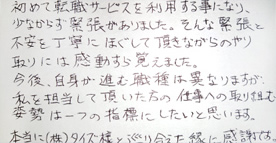 初めて転職サービスを利用する事になり、
少なからず緊張がありました。そんな緊張と
不安を丁寧にほぐして頂きながらのやり
取りには感動すら覚えました。
今後、自身が進む職種は異なりますが、
私を担当して頂いた方の仕事への取り組む
姿勢は一つの指標にしたいと思います。
本当に(株)タイズ様と巡り会えた縁に感謝です。